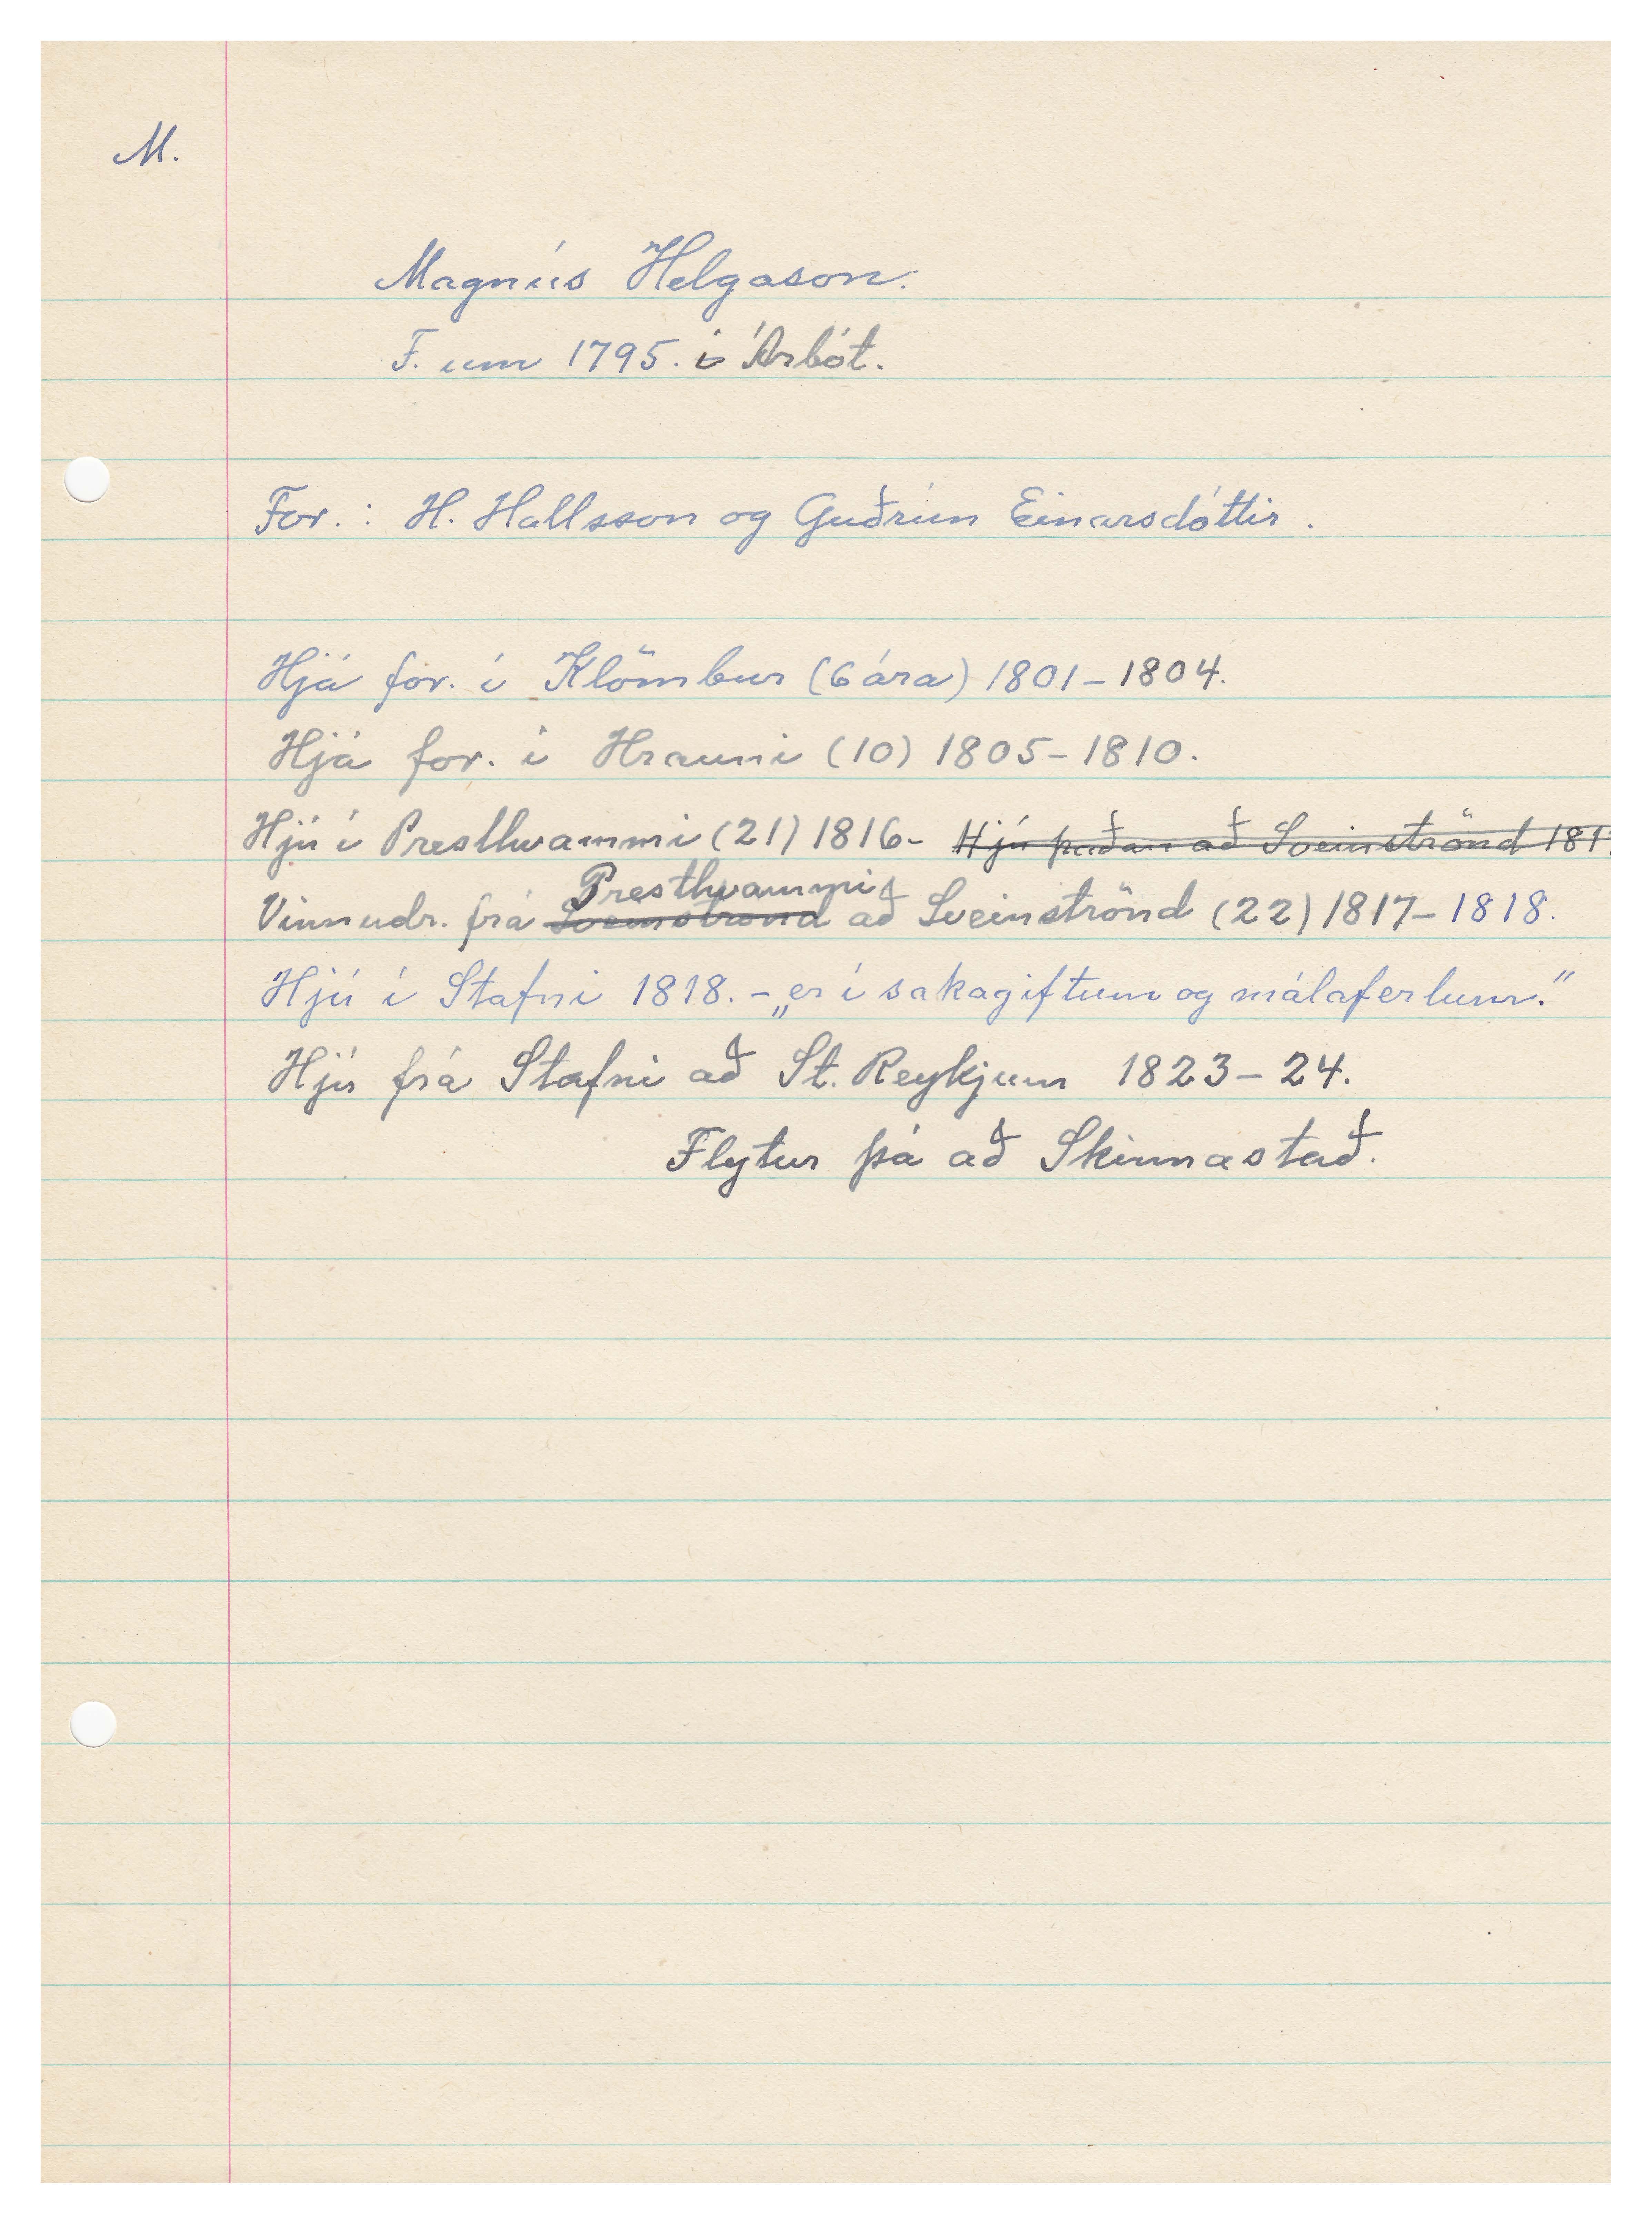 M.
Magnús Helgason.
F. um 1795. í Árbót.
For.: H. Hallsson og Guðrún Einarsdóttir.
Hjá for. í Klömbur (6 ára) 1801-1804.
Hjá for. í Hrauni (10) 1805-1810.
Hjú í Presthvammi (21) 1816- Hjú þaðan að Sveinströnd 181
Presthvammi
Vinnudr. frá Sveinströnd að Sveinströnd (22) 1817-1818.
Hjú í Stafni 1818. - „er í sakagiftum og málaferlum."
Hjú frá Stafni að St. Reykjum 1823-24.
Flytur þá að Skinnastað.